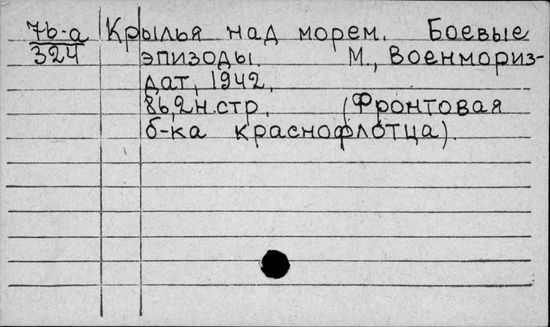 7б-а Крылья над морем. Боевые
324 эпизоды. М., Военмориз-
дат, 1942.
86,2н.стр. (Фронтовая
б-ка краснофлотца).